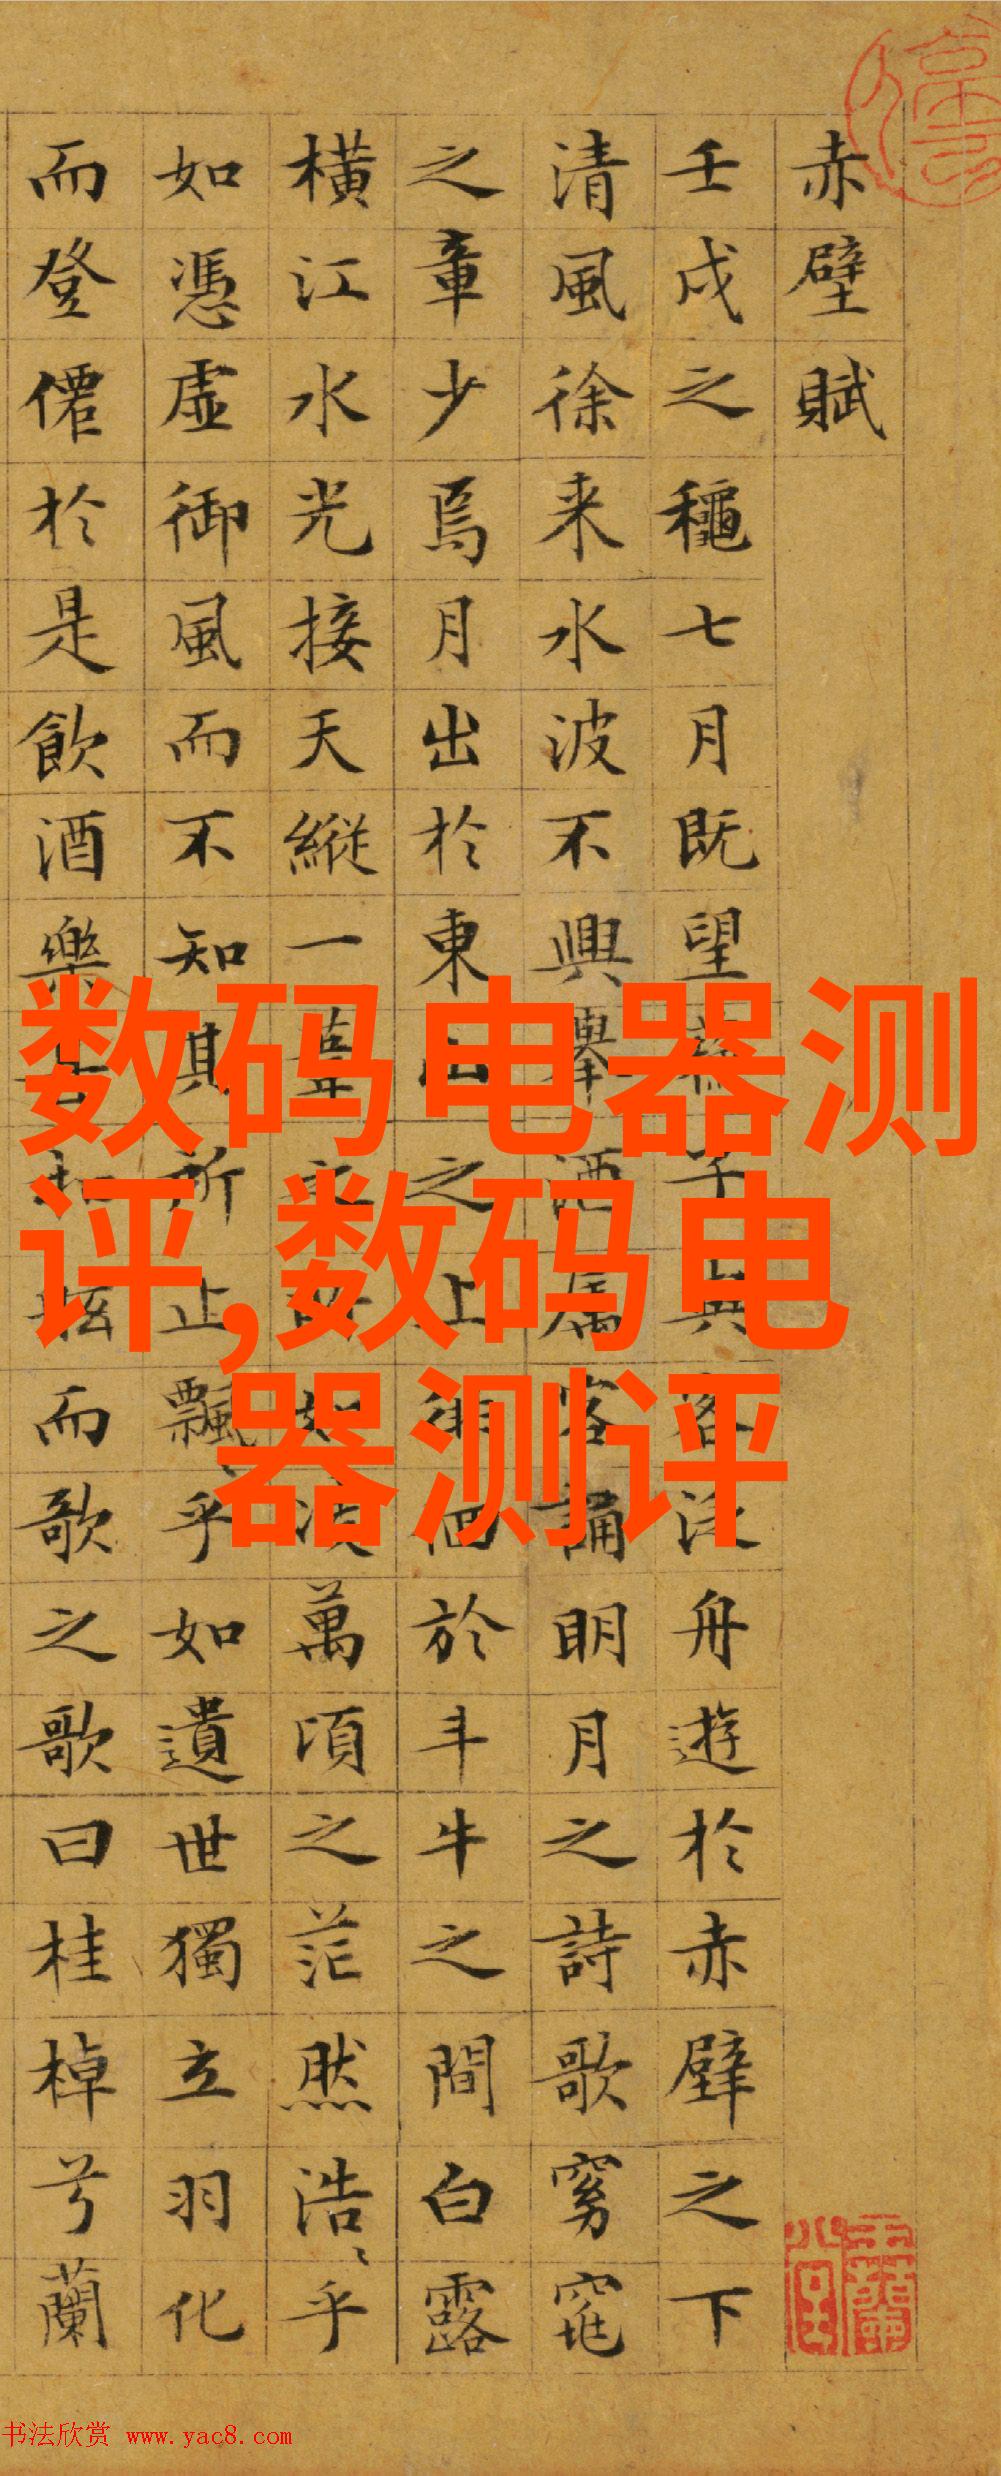 赤壁賦
壬戌之穐七月既望蘇子與客泛舟遊於赤壁之下
清風徐来水波不興舉酒屬客誦明月之詩歌窈窕
之章少焉月出於東山之上徘徊於斗牛之間白露
橫江水光接天縱一葦之所如凌萬頃之茫然浩〻乎
如憑虛御風而不知其所止飄〻乎如遺世獨立羽化
而登僊於是飲酒樂甚扣舷而歌之歌曰桂棹兮蘭
数码电器测
评,数码电
器测评
书法欣赏 www.yac8.com